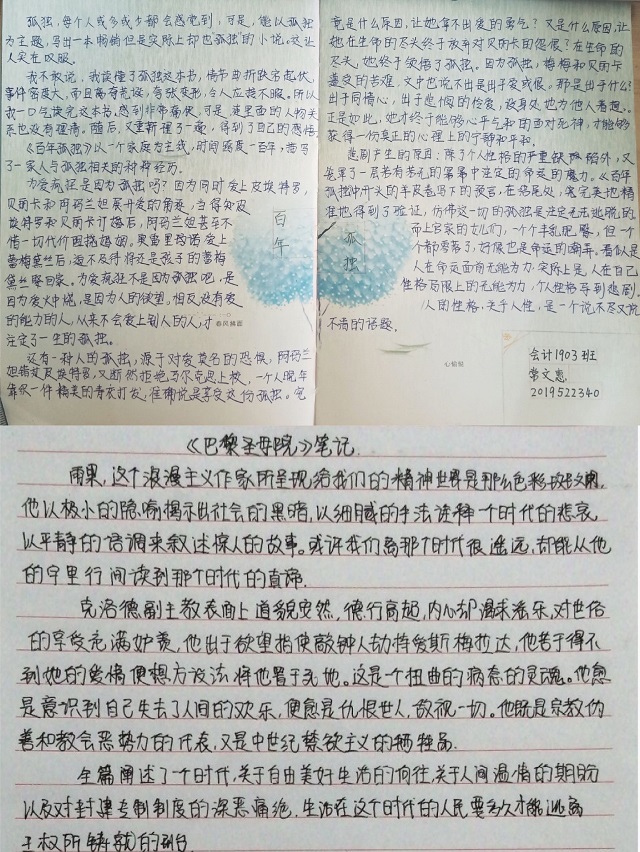 孤独,每个人或多或少都会感觉到,可是,能以孤独
为主题,写出一本畅销但是实际上却也"孤独"的小说。这让
人实在叹服。
我不敢说,我读懂了孤独这本书,情节曲折跌宕起伏,
事件密度大,而且离奇荒诞,夸张变形,令人应接不暇。所以
我一口气读完这本书,感到非常痛快,可是连里面的人物关
系也没有理清。随后,又重新理了一遍,得到了自己的感悟
《百年孤独》以一个家庭为主线,时间跨度一百年,描写
了一家人与孤独相关的种种经历。
为爱疯狂是因为孤独吗?因为同时爱上皮埃特罗,
贝丽卡和阿玛兰妲展开爱的角逐,当得知皮
埃特罗和贝丽卡订婚后,阿玛兰妲甚至不
惜一切代价困挠婚姻。奥雷里诺爱上
蕾梅黛丝后,迫不及待将还是孩子的蕾梅
黛丝娶回家。为爱疯狂不是因为孤独吧,是
因为爱火中烧,是因为人的欲望,相反没有爱
的能力的人,从来不会爱上别人的人,才
注定了一生的孤独。
还有一种人的孤独,源于对爱莫名的恐惧,阿玛兰
妲错爱皮埃特罗,又断然拒绝马尔克思上校,一个人晚年
靠织一件精美的寿衣打发,准确说是享受这份孤独。究
竟是什么原因,让她拿不出爱的勇气?又是什么原因,让
她在生命的尽头终于放弃对贝丽卡的怨恨?在生命的
尽头,她终于领悟了孤独。因为孤独,梅梅和贝丽卡
遭受的苦难,文中也说不出是出于爱或恨,那是出于什么?
出于同情心,出于悲悯的情愫,设身处地为他人着想。
正是如此,她才终于能够心平气和的面对死神,才能够
获得一份真正的心理上的宁静和平和。
悲剧产生的原因:除了个人性格的严重缺陷外,又
笼罩了一层若有若无的冥冥中注定的命运的魔力。《百年
孤独》中开头的羊皮卷写下的预言,在结尾处,客完美地精
准地得到了验证,仿佛这一切的孤独是注定无法逃脱的
命上官家的女儿们,一个个手乱肥臀,但一个
个都零落了,好像也是命运的嘲弄。看似是
人在命运面前无能为力,实际上是,人在自己
性格局限上的无能为力,个人性格导到悲剧。
人的性格,关于人性,是一个说不尽又说
不清的话题。
百年
孤独
春风拂面
心愉悦
会计1903班
常文惠
2019522340
《巴黎圣母院》笔记
雨果,这个浪漫主义作家所呈现给我们的精神世界是那么色彩斑斓,
他以极小的隐喻揭示出社会的黑暗,以细腻的手法诠释一个时代的悲哀
以平静的语调来叙述惊人的故事。或许我们离那个时代很遥远,却能从他
的字里行间读到那个时代的真谛.
克洛德副主教表面上道貌安然,德行高超,内心却渴求淫乐,对世俗
的享受充满妒羡,他出于欲望指使敲钟人劫持爱斯梅拉达,他苦于得不
到她的爱情便想方设法将他置于死地。这是个扭曲的病态的灵魂。他愈
是意识到自己失去了人间的欢乐,便愈是仇恨世人,敌视一切。他既是宗教伪
善和教会恶势力的代表,又是中世纪禁欲主义的牺牲品.
全篇阐述了个时代,关于自由美好生活的向往,关于人间温情的期盼
以及对封建专制制度的深恶痛绝,生活在这个时代的人民要多久才能逃离
王权所铸就的